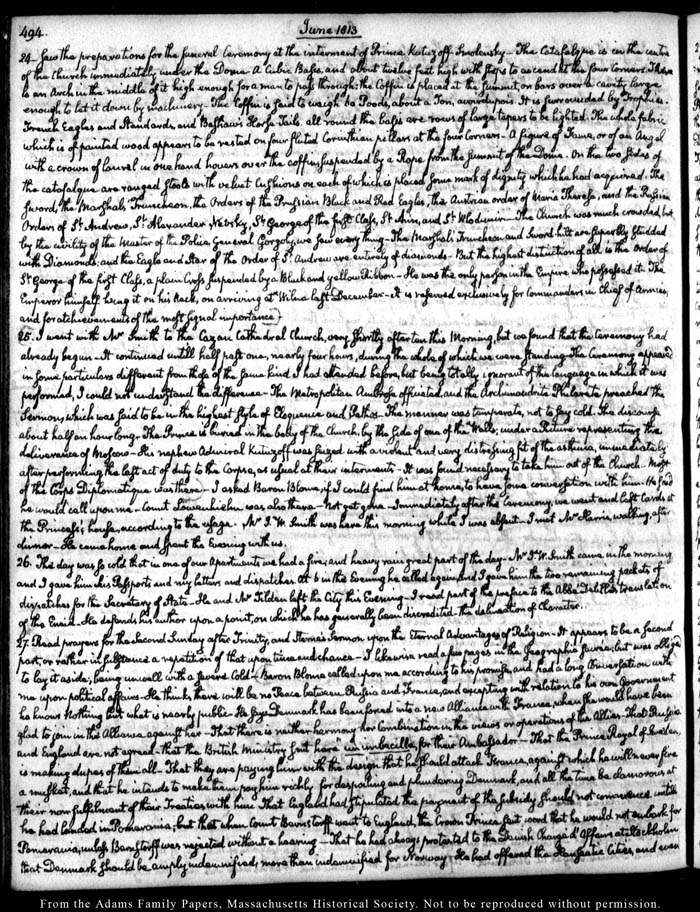 494.
June 1813
24. Saw the preparations for the funeral Ceremony at the interment of Prince Kutuzoff Smolensky. The Catafalque is in the centre
of the Church immediately under the Dome. A Cubic Basis, and about twelve feet high with steps to ascend at the four corners. There
is an Arch in the middle of it high enough for a man to pass through; the Coffin is placed at the Summit, on bars over a cavity large
enough to let it down by machinery. The Coffin is said to weigh 60 Poods, about a Ton, avoirdupois. It is surrounded by Trophies.
French Eagles and Standards, and Bashaw's Horse Tails. all round the basis are rows of large tapers to be lighted. The whole fabric
which is of painted wood appears to be rested on four fluted Corinthian pillars at the four Corners. A figure of Fame, or of an Angel
with a crown of laurel in one hand hovers over the coffin suspended by a Rope from the summit of the Dome. On the two sides of
the catafalque are ranged stools with velvet Cushions on each of which is placed some mark of dignity which he had acquired. The
Sword, the Marshal's Truncheon, the Orders of the Prussian Black and Red Eagles, the Austrian order of Maria Theresa, and the Russian
Orders of St. Andrew, St. Alexander Newsky, St. George of the first Class, St. Ann, and St. Wlodimir. The Church was much crowded, but
by the civility of the Master of the Police, General Gorgoly, we saw every thing. The Marshal's Truncheon and Sword hilt are superbly studded
with Diamonds; and the Eagle and Star of the Order of St. Andrew are entirely of diamonds. But the highest distinction of all is the Order of
St. George of the first Class, a plain Cross suspended by a Black and yellow Ribbon. He was the only person in the Empire who possessed it. The
Emperor himself hung it on his Neck, on arriving at Wilna last December. It is reserved exclusively for Commanders in chief of Armies,
and for atchievements of the most signal importance.
25. I went with Mr Smith to the Cazan Cathedral Church, very shortly after ten this Morning, but we found that the Ceremony had
already begun. It continued untill half past one, nearly four hours, during the whole of which we were standing. The Ceremony appeared
in some particulars different from those of the same kind I had attended before, but being totally ignorant of the language in which it was
performed, I could not understand the difference. The Metropolitan Ambrose officiated, and the Archimandrite Philarete preached the
Sermon, which was said to be in the highest style of Eloquence and Pathos. The manner was temperate, not to say cold. The discourse
about half an hour long. The Prince is buried in the body of the Church, by the side of one of the Walls, under a Picture representing the
deliverance of Moscow. His nephew Admiral Kutuzoff was seized with a violent and very distressing fit of the asthma, immediately
after performing the last act of duty to the Corpse, as usual at their interments. It was found necessary to take him out of the Church. Most
of the Corps Diplomatique was there. I asked Baron Blome, if I could find him at home, to have some conversation with him. He said
he would call upon me. Count Lowenhielm was also there. Not yet gone. Immediately after the Ceremony, we went and left Cards at
the Princess's house, according to the usage. Mr. J. W. Smith was here this morning while I was absent. I met Mr Harris, walking, after
dinner. He came home and spent the Evening with us.
26. This day was so cold that in one of our Apartments we had a fire; and heavy rain great part of the day. Mr J. W. Smith came in the morning
and I gave him his Passports and my letters and dispatches. At 6 in the Evening he called again, and I gave him the two remaining packets of
dispatches for the Secretary of State. He and Mr Tilden left the City this Evening. I read part of the preface to the Abbé Delille's translation
of the Eneid. He defends his author upon a point, on which he has generally been discredited. the delineation of Character.
27. Read prayers for the Second Sunday after Trinity, and Sterne's Sermon upon the Eternal Advantages of Religion. It appears to be a second
part, or rather in substance a repetition of that upon time and chance. I likewise read a few pages in the Geographie Sacrée; but was obliged
to lay it aside, being unwell with a severe Cold. Baron Blome called upon me according to his promise, and had a long Conversation with
me upon political affairs. He thinks there will be no Peace between Russia and France, and excepting with relation to his own Government
he knows Nothing but what is nearly public. He says Denmark has been forced into a new Alliance with France, when she would have been
glad to join in the Alliance against her. That there is neither harmony nor Combination in the views or operations of the Allies. That Russia
and England are not agreed. that the British Ministry sent here un imbecille, for their Ambassador. That the Prince Royal of Sweden,
is making dupes of them all. That they are paying him with the design that he should attack France, against which he will never fire
a musket, and that he intends to make them pay him richly for despoiling and plundering Denmark, and all the time be clamorous at
their non fulfilment of their Treaties with him. That England had stipulated the payment of the Subsidy should not commence, untill
he had landed in Pomerania; but that when Count Bernstorff went to England, the Crown Prince sent word that he would not embark for
Pomerania, unless Bernstorff was rejected without a hearing. That he had always protested to the Danish Chargé d'Affaires at Stockholm
that Denmark should be amply indemnified, more than indemnified for Norway. He had offered the Hanseatic Cities, and even
From the Adams Family Papers, Massachusetts Historical Society. Not to be reproduced without permission.